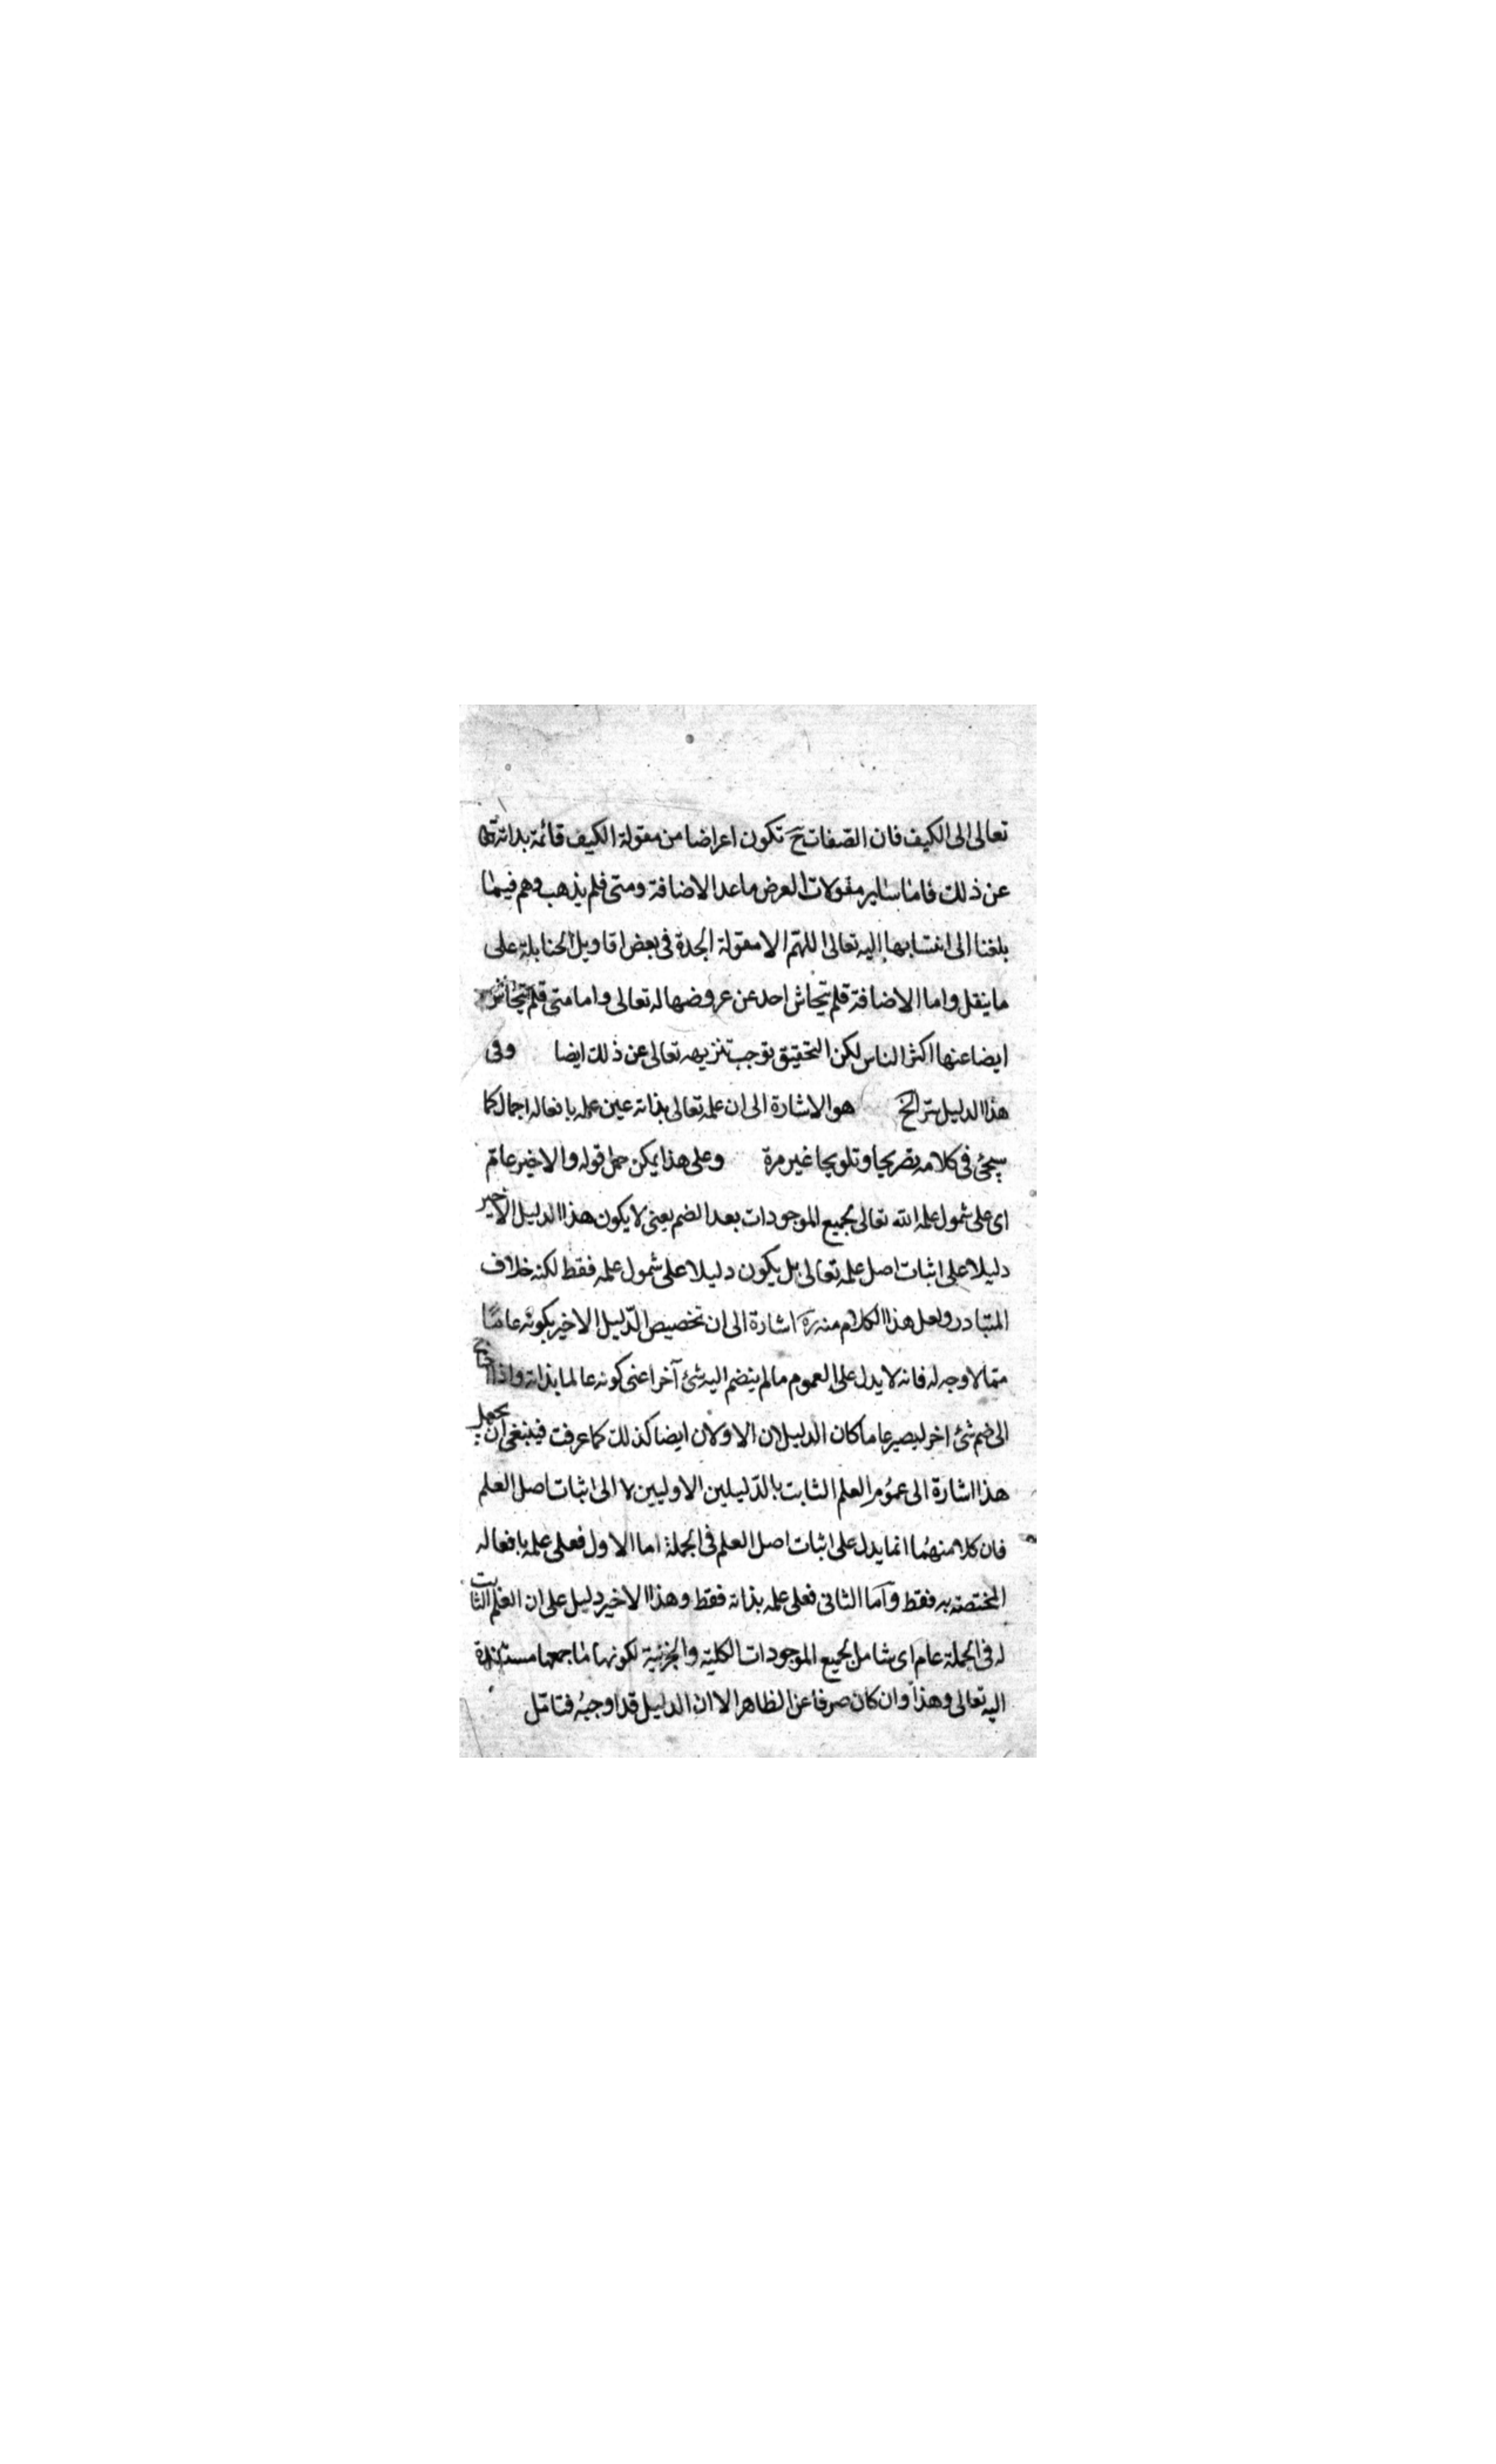 تعالى الى الكيف فان الصفات ح تكون اعراضا من مقولة الكيف قائمة بذاته تعالى
عن ذلك فاما ساير مقولات العرض ما عدا الاضافة ومتى فلم يذهب وهم فيما
بلغنا الى انتسابها اليه تعالى اللهم الا مقولة الجدة فى بعض اقاويل الحنابلة على
ما ينقل واما الاضافة فلم يتحاش احد عن عروضها له تعالى واما متى فلم يتحاش
ايضا عنها اكثر الناس لكن التحقيق توجب تنزيهه تعالى عن ذلك ايضا وفى
هذا الدليل سر الخ هو الاشارة الى ان علمه تعالى بذاته عين علمه بافعاله اجمالا كما
سيجئ فى كلامه تصريحا وتلويحا غير مرة وعلى هذا يمكن حمل قوله والاخير عام
اى على شمول علم الله تعالى لجميع الموجودات بعد الضم يعنى لا يكون هذا الدليل الاخير
دليلا على اثبات اصل علمه تعالى بل يكون دليلا على شمول علمه فقط لكنه خلاف
المتبادر ولعل هذا الكلام منه ره اشارة الى ان تخصيص الدليل الاخير بكونه عاما
مما لا وجه له فانه لا يدل على العموم ما لم ينضم اليه شئ آخر اعنى كونه عالما بذاته واذا احتاج
الى ضم شئ اخر ليصير عاما كان الدليلان الاولان ايضا كذلك كما عرفت فينبغى ان يجعل
هذا اشارة الى عموم العلم الثابت بالدليلين الاوليين لا الى اثبات اصل العلم
فان كلا منهما انما يدل على اثبات اصل العلم فى الجملة اما الاول فعلى علمه بافعاله
المختصة به فقط وآما الثانى فعلى علمه بذاته فقط وهذا الاخير دليل على ان العلم الثابت
له فى الجملة عام اى شامل لجميع الموجودات الكلية والجزئية لكونها باجمعها مستندة
اليه تعالى وهذا وان كان صرفا عن الظاهر الا ان الدليل قد اوجبه فتامل